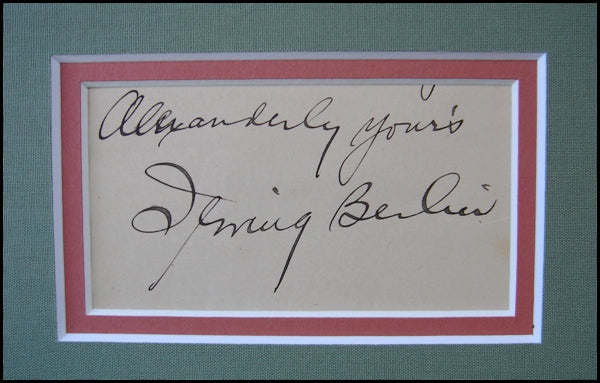 Alexanderly your's
Irving Berlin